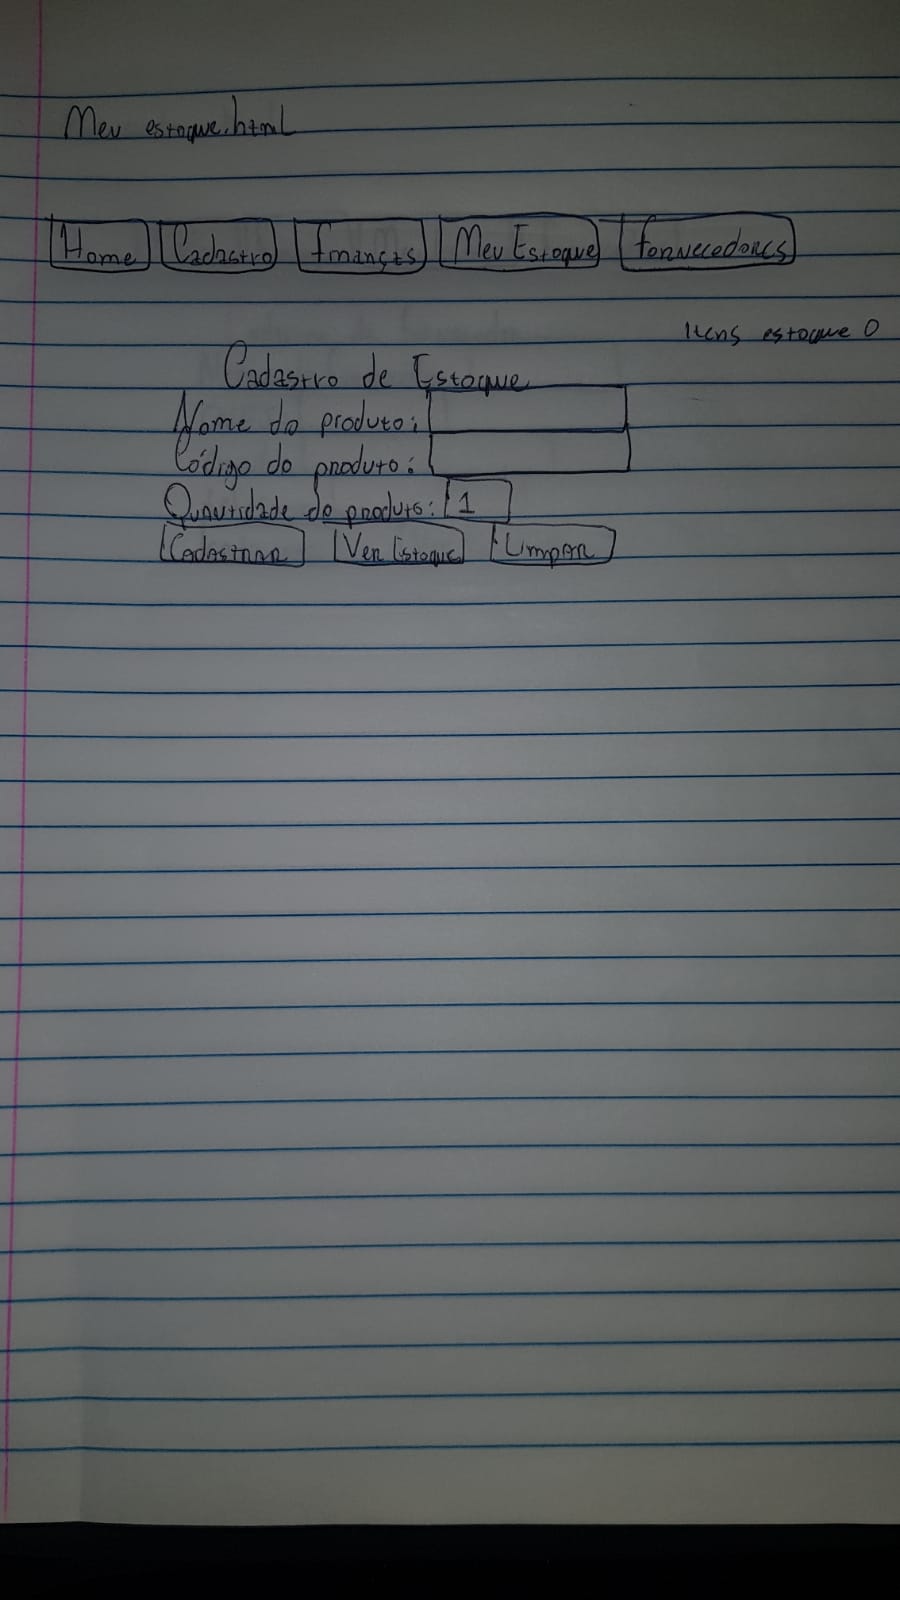 Meu estoque.html
Home Cadastro Finanças Meu Estoque Fornecedores
Itens estoque 0
Cadastro de Estoque
Nome do produto:
Código do produto:
Quantidade do produto: 1
Cadastrar Ver Estoque Limpar